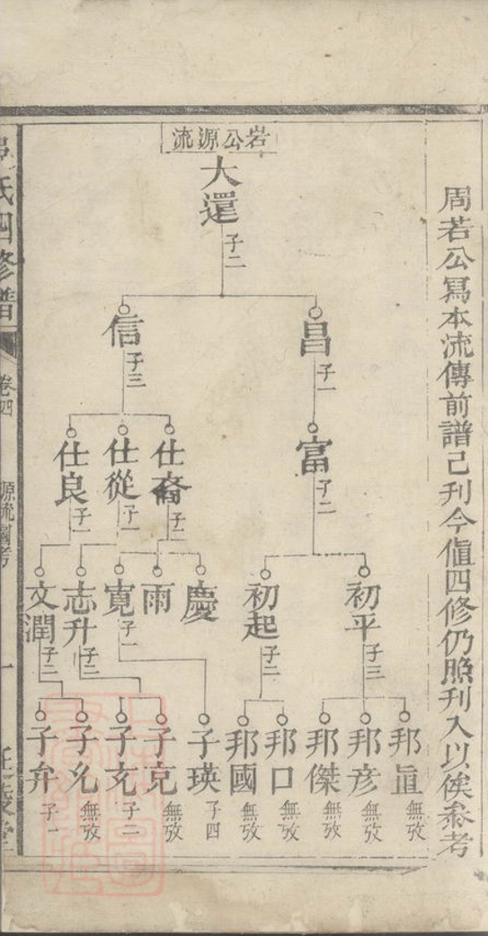 周若公冩本流傳前譜已刋今值四修仍照刋入以俟叅考
岩公源流
大還
子二
昌
子一
信
子三
富
子二
仕裔
子二
仕從
子一
仕良
子一
初平
子三
初起
子二
慶
雨
寬
子一
志升
子二
文潤
子二
邦直
無攷
邦彦
無攷
邦傑
無攷
邦口
無攷
邦國
無攷
子瑛
子四
子克
無攷
子玄
子二
子允
無攷
子弁
子一
氏四修譜
卷四
源流圖考
一